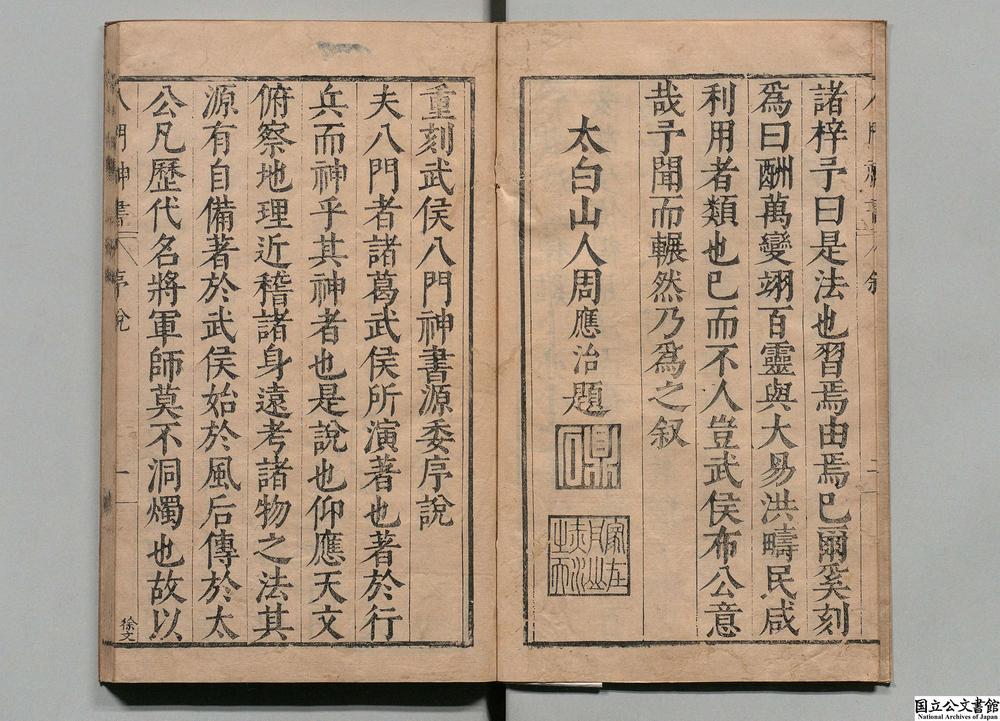 諸梓予曰是法也習焉由焉已爾奚刻
爲曰酬萬變翊百靈與大易洪疇民咸
利用者類也已而不人豈武侯布公意
哉予聞而輾然乃爲之叙
太白山人周應治題
重刻武侯八門神書源委序說
夫八門者諸葛武侯所演著也著於行
兵而神乎其神者也是說也仰應天文
俯察地理近稽諸身遠考諸物之法其
源有自備著於武侯始於風后傳於太
公凡歷代名將軍師莫不洞燭也故以
八門神書
序說
一
徐文
国立公文書館
National Archives of Japan